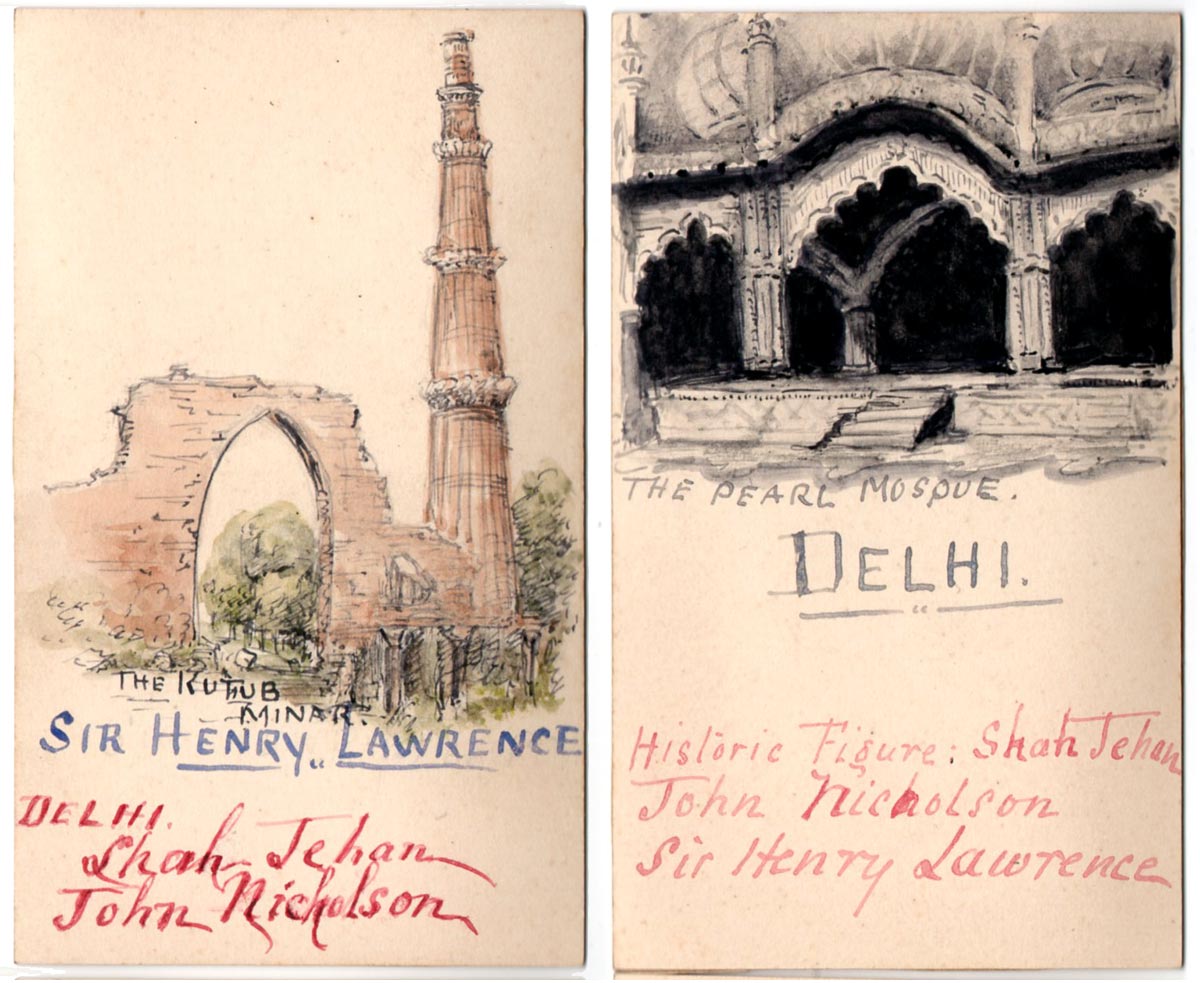 THE KUTUB
MINAR.
SIR HENRY LAWRENCE
DELHI.
Shah Jehan
John Nicholson
THE PEARL MOSQUE.
DELHI.
Historic Figure: Shah Jehan
John Nicholson
Sir Henry Lawrence